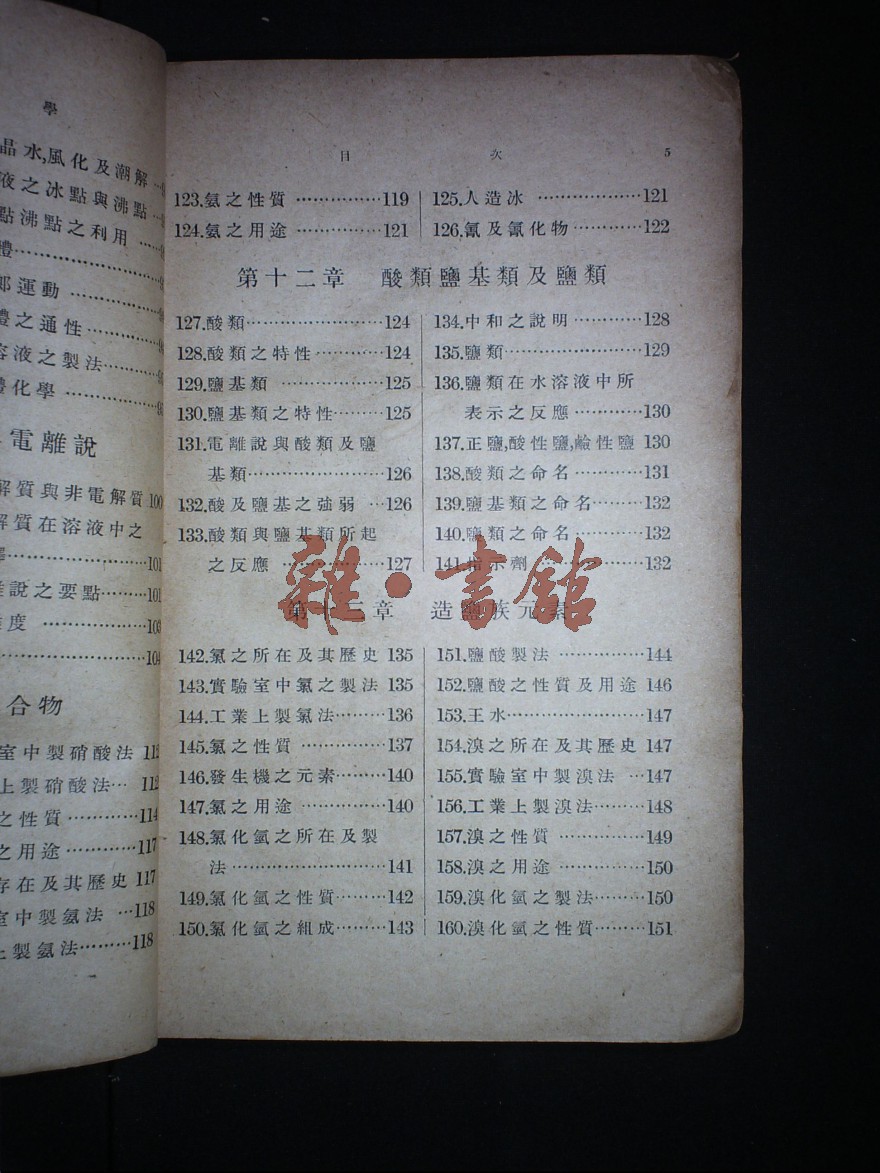 學
晶水,風化及潮解…
液之冰點與沸點…
點沸點之利用……
體………………
郎運動…………
體之通性…………
溶液之製法………
體化學…………
電離說
解質與非電解質100
解質在溶液中之
…………………101
說之要點……101
度……………103
…………………104
合物
室中製硝酸法 112
上製硝酸法… 112
之性質…………114
之用途…………117
存在及其歷史 117
室中製氨法…118
上製氨法………118
目 次 5
123.氨之性質……………119
124.氨之用途……………121
125.人造冰…………………121
126.氰及氰化物…………122
第十二章 酸類鹽基類及鹽類
127.酸類……………………124
128.酸類之特性…………124
129.鹽基類………………125
130.鹽基類之特性………125
131.電離說與酸類及鹽
基類……………………126
132.酸及鹽基之強弱…126
133.酸類與鹽基類所起
之反應………………127
134.中和之說明…………128
135.鹽類……………………129
136.鹽類在水溶液中所
表示之反應…………130
137.正鹽,酸性鹽,鹼性鹽 130
138.酸類之命名…………131
139.鹽基類之命名………132
140.鹽類之命名…………132
141.指示劑………………132
雜·書館
第十三章 造鹽族元素
142.氯之所在及其歷史 135
143.實驗室中氯之製法 135
144.工業上製氯法………136
145.氯之性質……………137
146.發生機之元素………140
147.氯之用途……………140
148.氯化氫之所在及製
法………………………141
149.氯化氫之性質………142
150.氯化氫之組成………143
151.鹽酸製法……………144
152.鹽酸之性質及用途 146
153.王水……………………147
154.溴之所在及其歷史 147
155.實驗室中製溴法…147
156.工業上製溴法………148
157.溴之性質……………149
158.溴之用途……………150
159.溴化氫之製法………150
160.溴化氫之性質………151